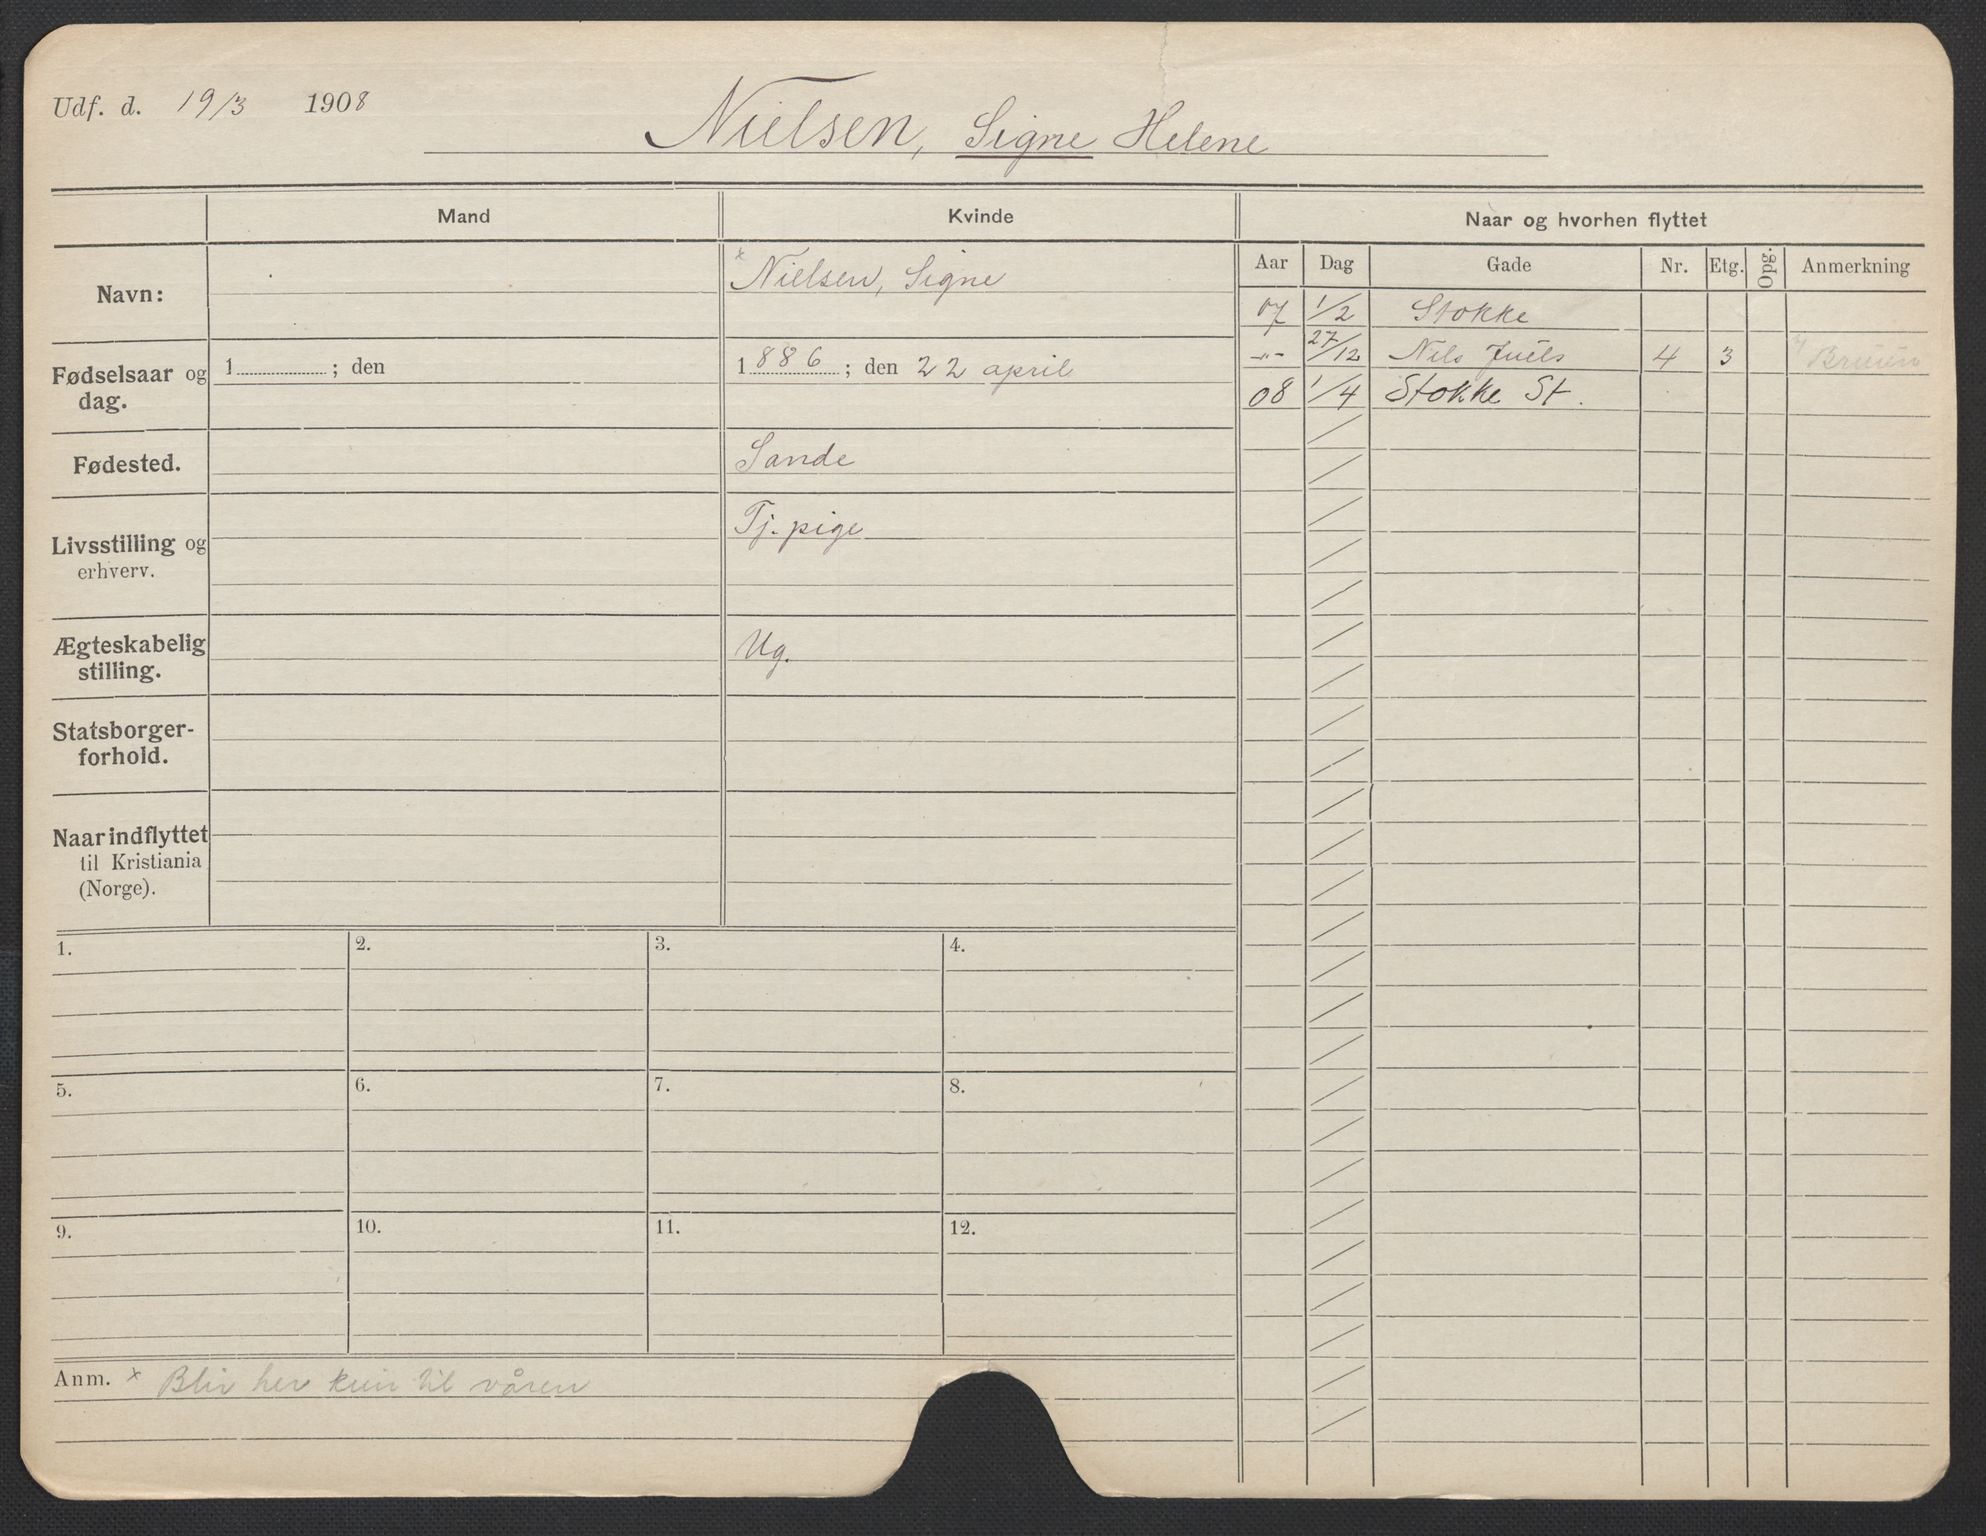 Udf. d. 19/3 1908
Nielsen, Signe Helene
Mand
Kvinde
Naar og hvorhen flyttet
Aar
Dag
Gade
Nr.
Etg.
Opg.
Anmerkning
Navn:
x Nielsen, Signe
07 1/2 Stokke
-"- 27/12 Nils Juels 4 3
08 1/4 Stokke St.
Fødselsaar og
dag.
1 ; den
1886 ; den 22 april
Fødested.
Sande
Livsstilling og
erhverv.
Tj. pige
Ægteskabelig
stilling.
Ug.
Statsborger-
forhold.
Naar indflyttet
til Kristiania
(Norge).
1.
2.
3.
4.
5.
6.
7.
8.
9.
10.
11.
12.
Anm. x Blir her kun til våren